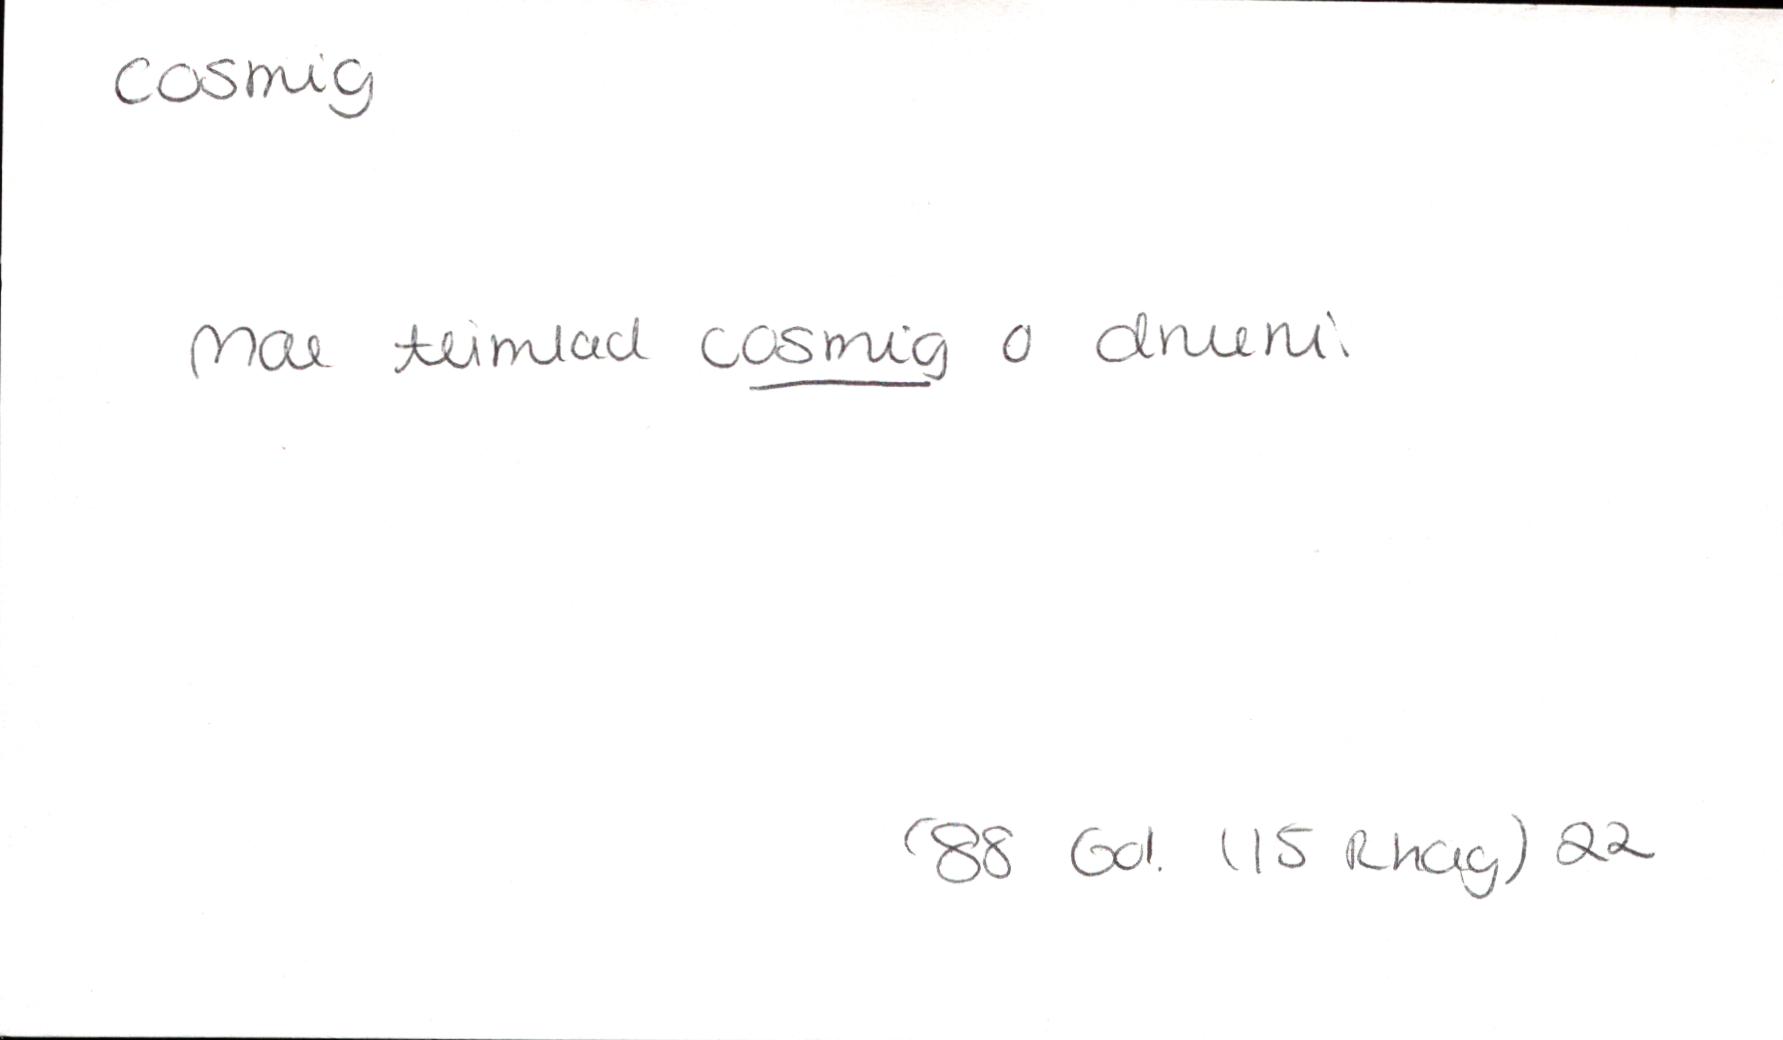 cosmig
Mae teimlad cosmig o drueni.
'88 Gol. (15 Rhag) 22